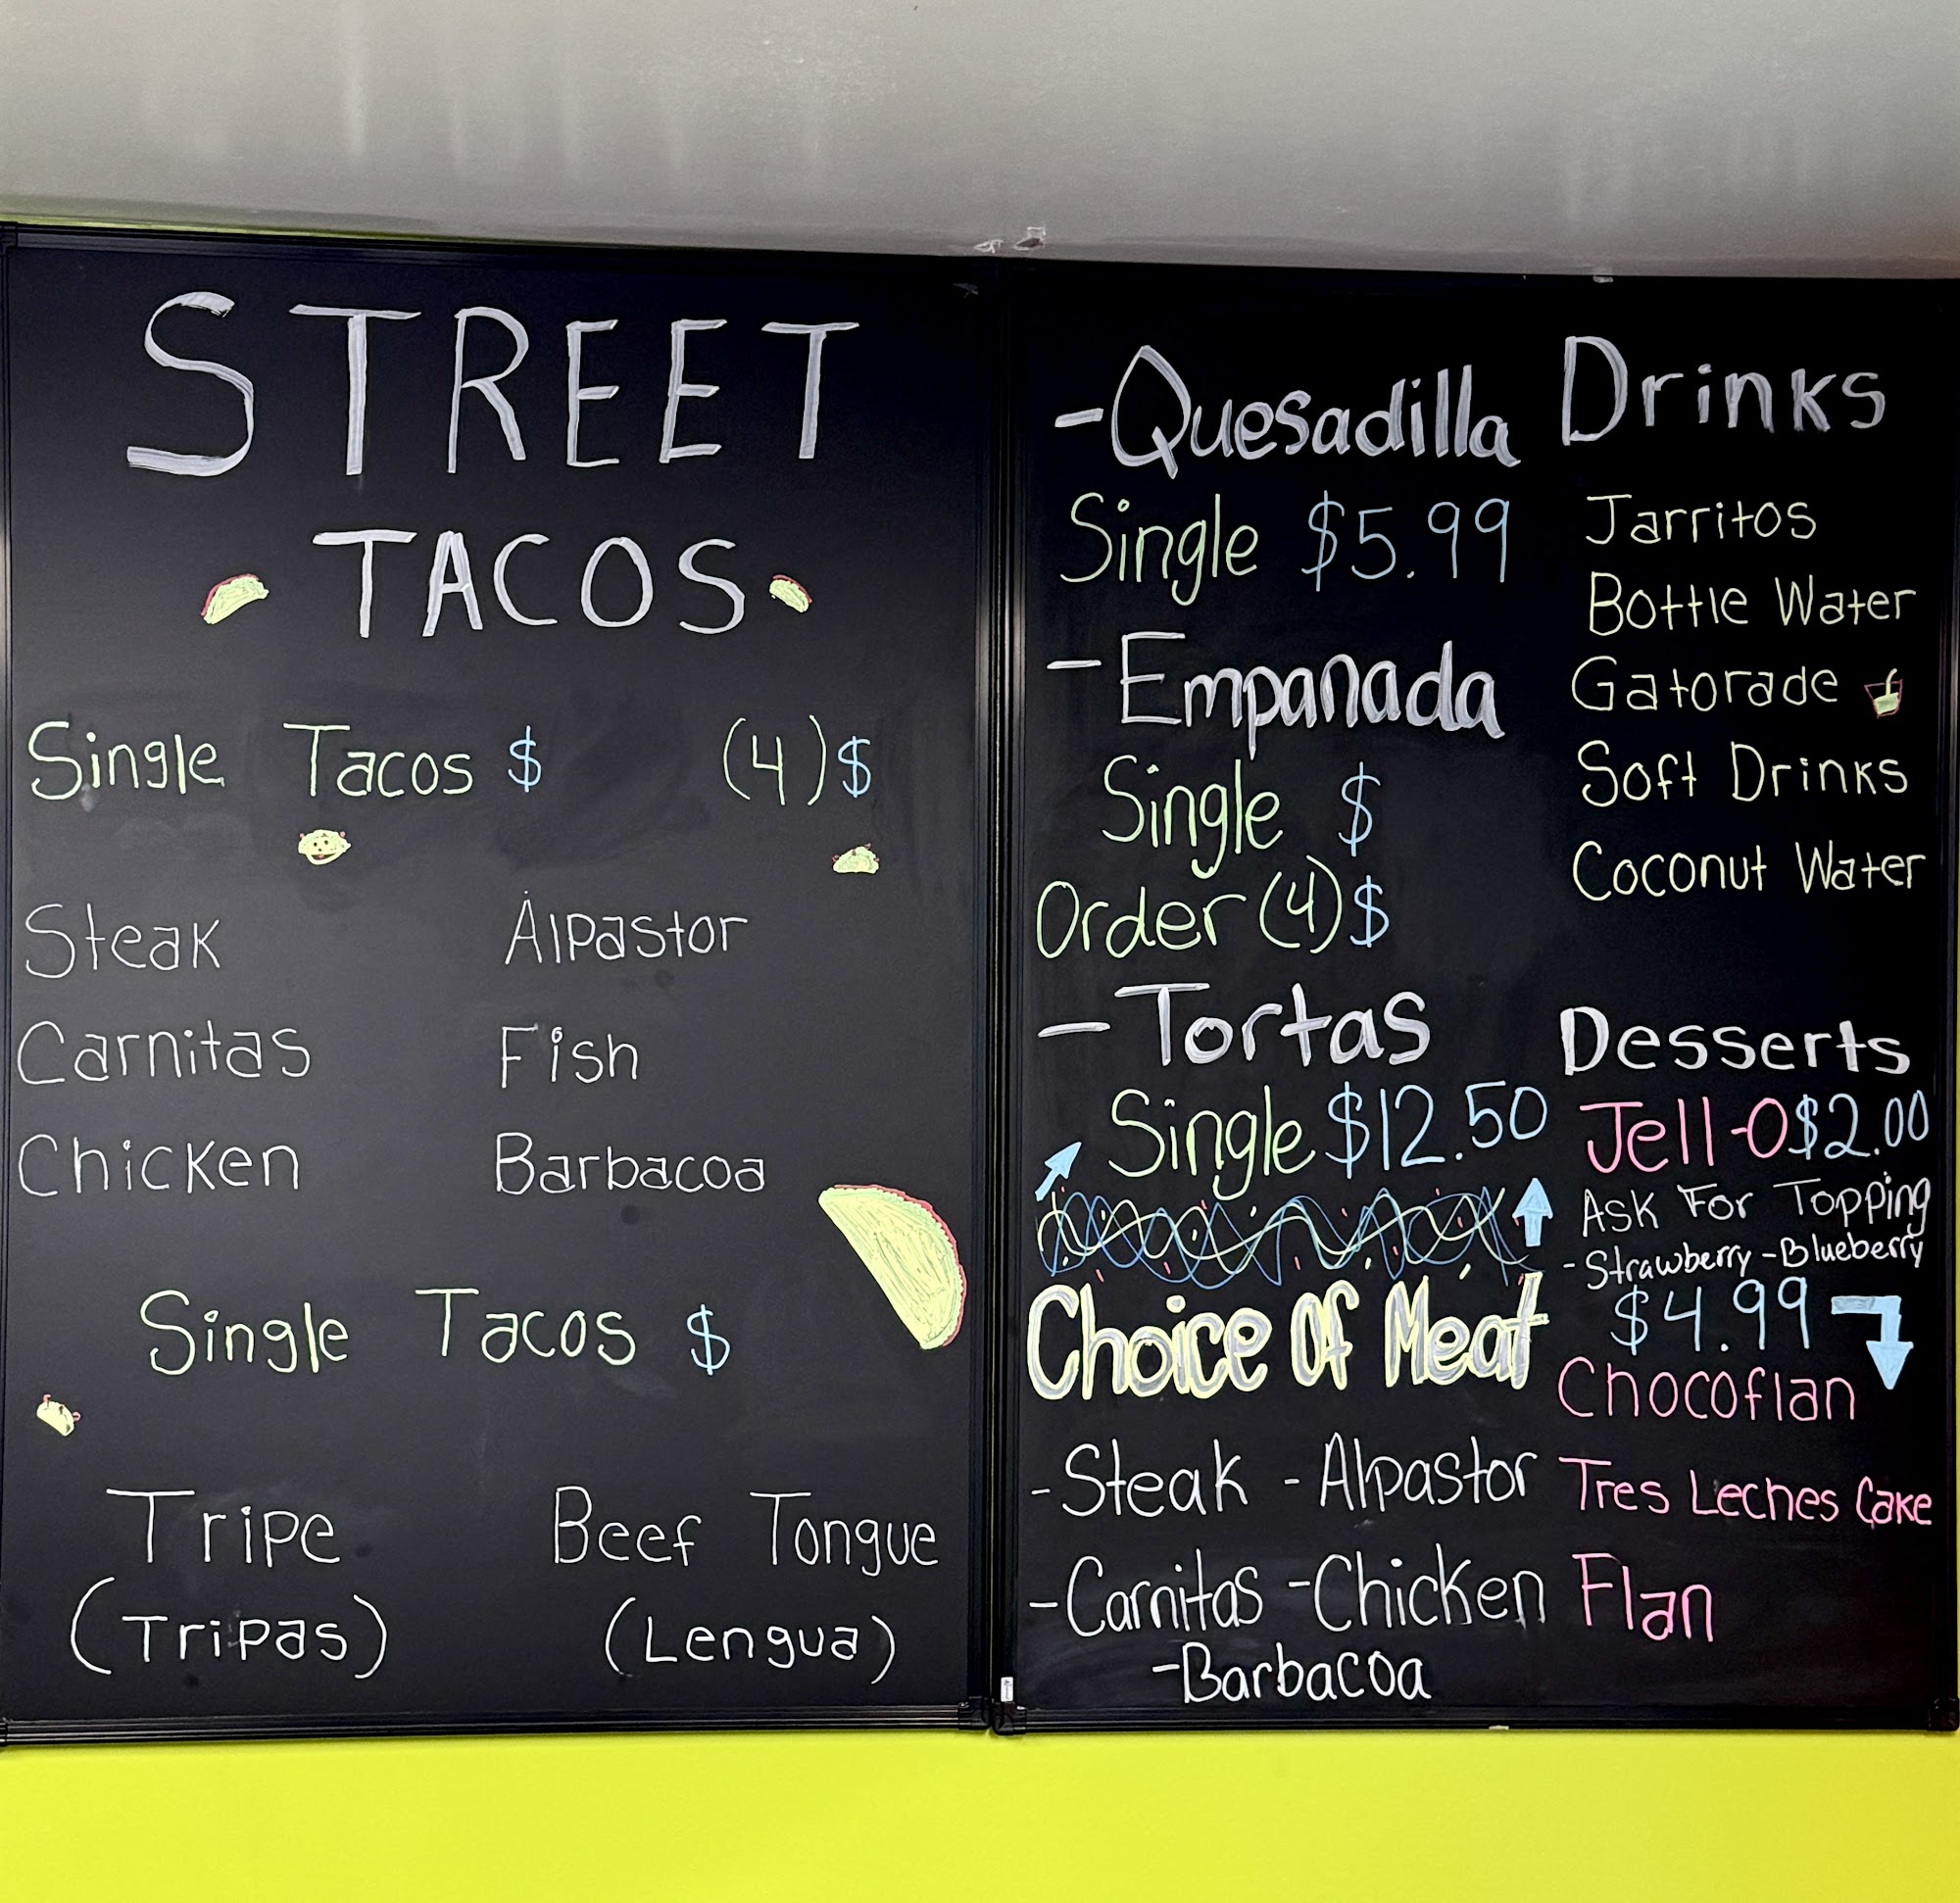 STREET
TACOS
Single Tacos $ (4)$
Steak Alpastor
Carnitas Fish
Chicken Barbacoa
Single Tacos $
Tripe Beef Tongue
(Tripas) (Lengua)
-Quesadilla
Single $5.99
-Empanada
Single $
Order (4)$
-Tortas
Single $12.50
Choice Of Meat
-Steak -Alpastor
-Carnitas -Chicken
-Barbacoa
Drinks
Jarritos
Bottle Water
Gatorade
Soft Drinks
Coconut Water
Desserts
Jell-O $2.00
Ask For Topping
-Strawberry -Blueberry
$4.99
Chocoflan
Tres Leches Cake
Flan